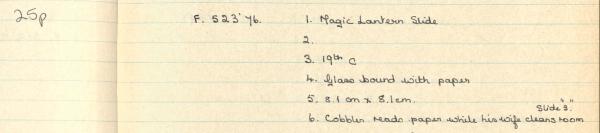 25p
F. 523'76. 1. Magic Lantern Slide
2.
3. 19th C
4. Glass bound with paper
5. 8.1 cm x 8.1cm.
Slide "3."
6. Cobbler reads paper while his wife cleans room